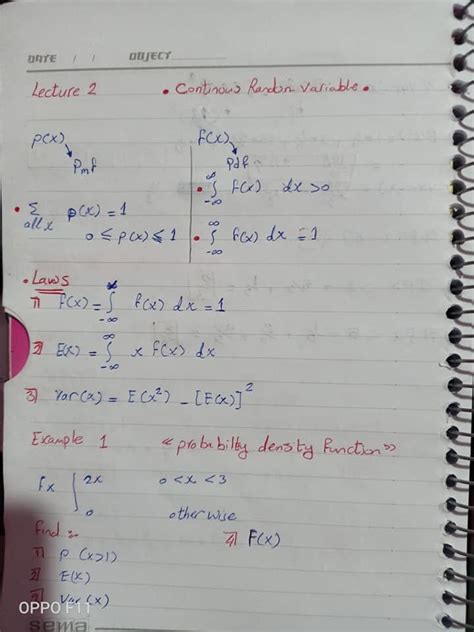 DATE / / OBJECT
Lecture 2 • Continous Random Variable •
p(x) f(x)
Pmf Pdf
• ∫_{-∞}^{∞} f(x) dx > 0
• Σ_{all x} p(x) = 1
0 ≤ p(x) ≤ 1 • ∫_{-∞}^{∞} f(x) dx = 1
• Laws
1) f(x) = ∫_{-∞}^{∞} f(x) dx = 1
2) E(x) = ∫_{-∞}^{∞} x f(x) dx
3) Var(x) = E(x²) - [E(x)]²
Example 1 «probabilty density Function»
fx { 2x 0 < x < 3
0 otherwise
find :-
4) F(x)
1) P (x>1)
2) E(x)
3) Var(x)
OPPO F11
sema